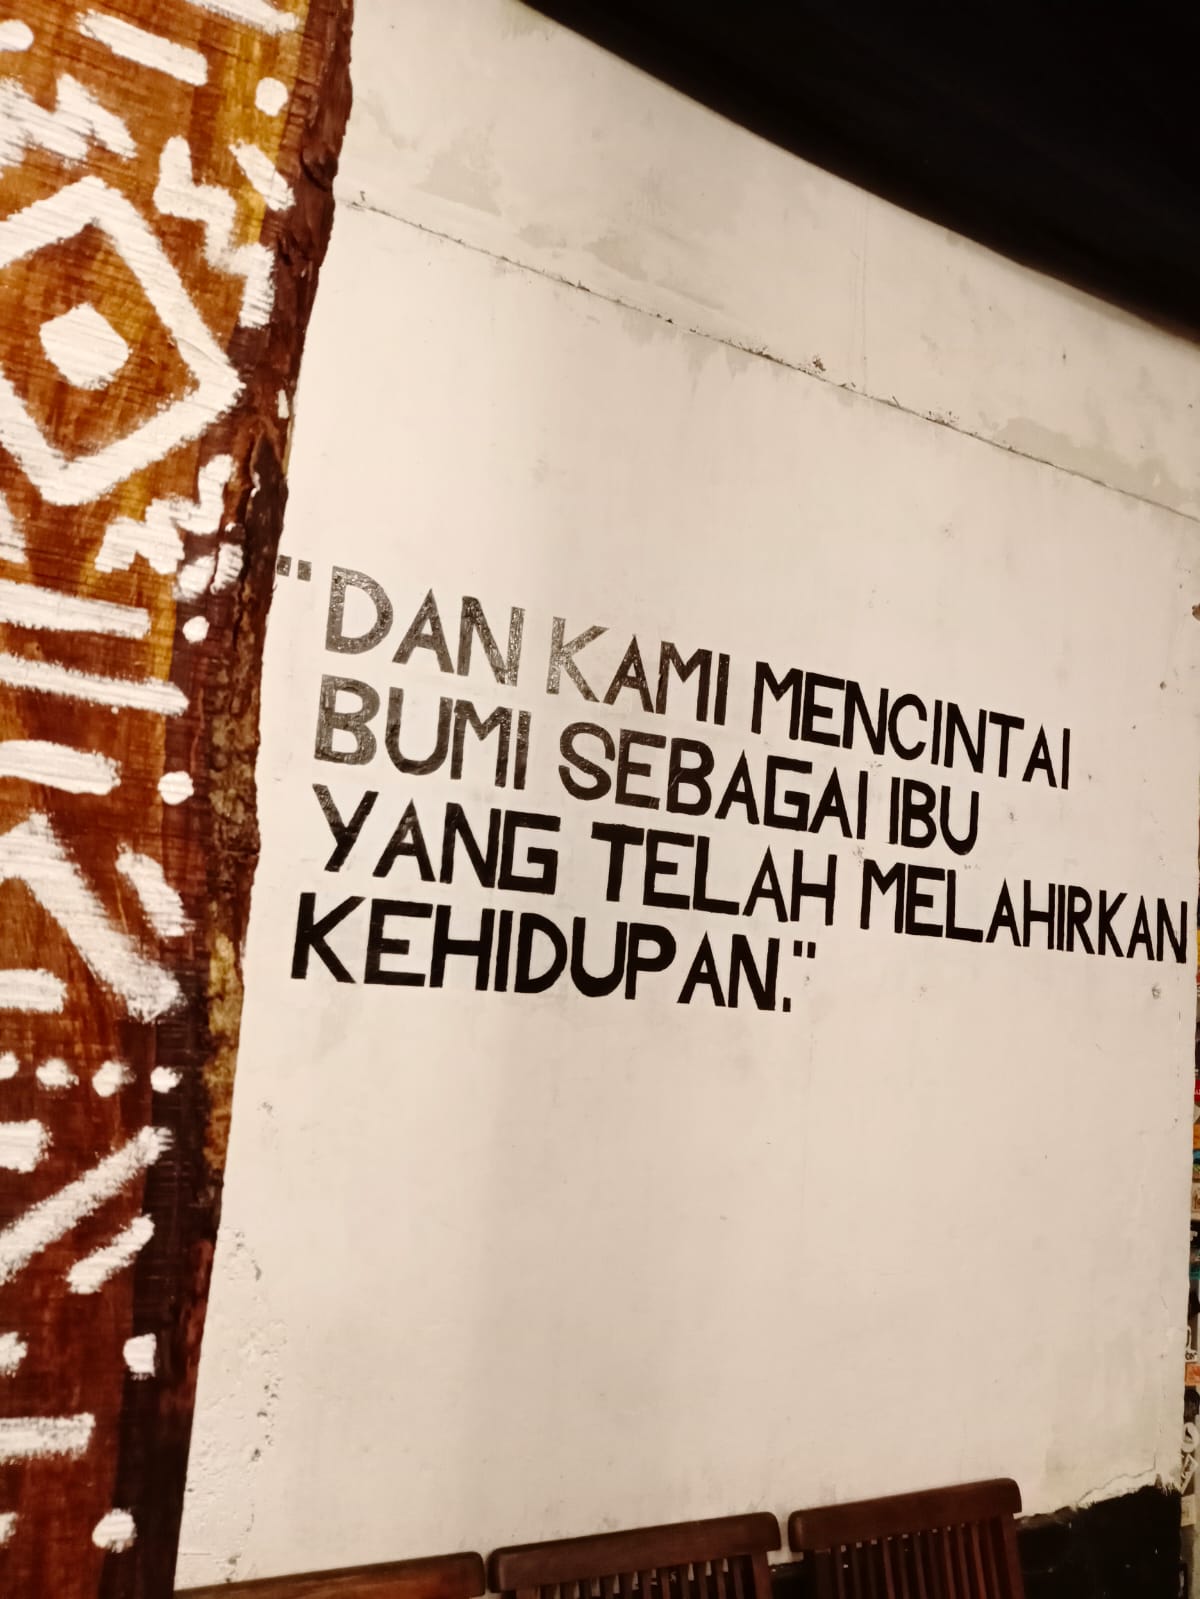 "DAN KAMI MENCINTAI
BUMI SEBAGAI IBU
YANG TELAH MELAHIRKAN
KEHIDUPAN."